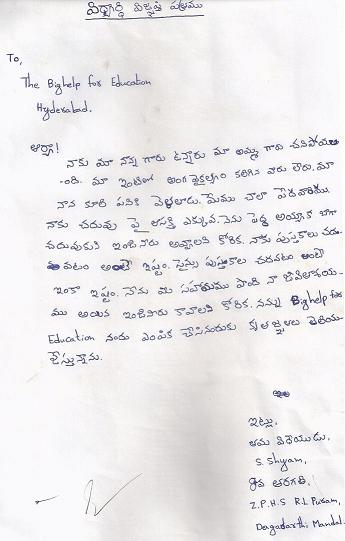 విద్యార్థి విజ్ఞప్తి పత్రము
To,
The Bighelp for Education
Hyderabad.
ఆర్యా!
నాకు మా నాన్న గారు ఉన్నారు మా అమ్మ గారు చనిపోయి
-ంది. మా ఇంటిలో అంగ వైకల్యం కలిగిన వారు లేరు. మా
నాన కూలి పనికి వెళ్తాడు. మేము చాలా పేదవారిమి
నాకు చదువు పై ఆసక్తి ఎక్కువ. నేను పెద్ద అయ్యాక బాగా
చదువుకుని ఇంజినీరు అవ్వాలని కోరిక. నాకు పుస్తకాలు చద-
వటం అంటే ఇష్టం. సైన్సు పుస్తకాలు చదవటం అంటే
ఇంకా ఇష్టం. నేను మీ సహాయము పొంది నా జీవితాశయ-
ము అయిన ఇంజినీరు కావాలని కోరిక. నన్ను Bighelp for
Education నందు ఎంపిక చేసినందుకు కృతజ్ఞతలు తెలియ-
జేస్తున్నాను.
ఇట్లు,
తమ విధేయుడు,
S. Shyam,
తరగతి,
Z.P.H.S R.L Puram,
Dagadarthi Mandal.